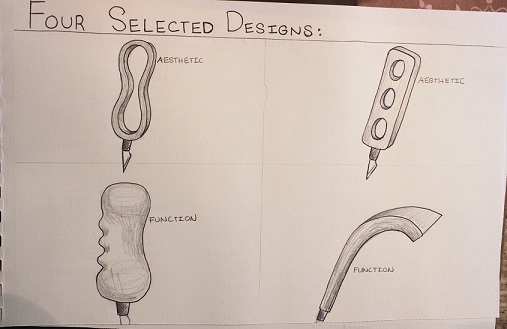 FOUR SELECTED DESIGNS:
AESTHETIC
AESTHETIC
FUNCTION
FUNCTION